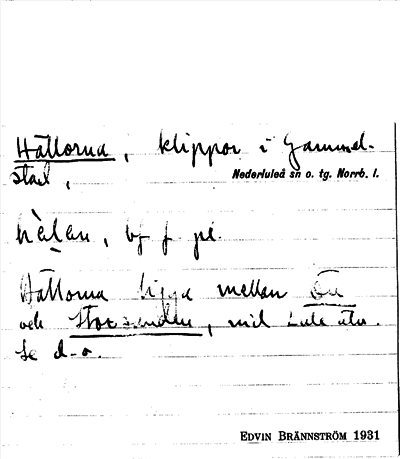 Hällorna, klippor i Gammel-
stad,
Nederluleå sn o. tg. Norrb. l.
hὲlan, bf f pl.
Hällorna ligga mellan Ön
och Storsanden, vid Lule älv.
Se d-o.
EDVIN BRÄNNSTRÖM 1931